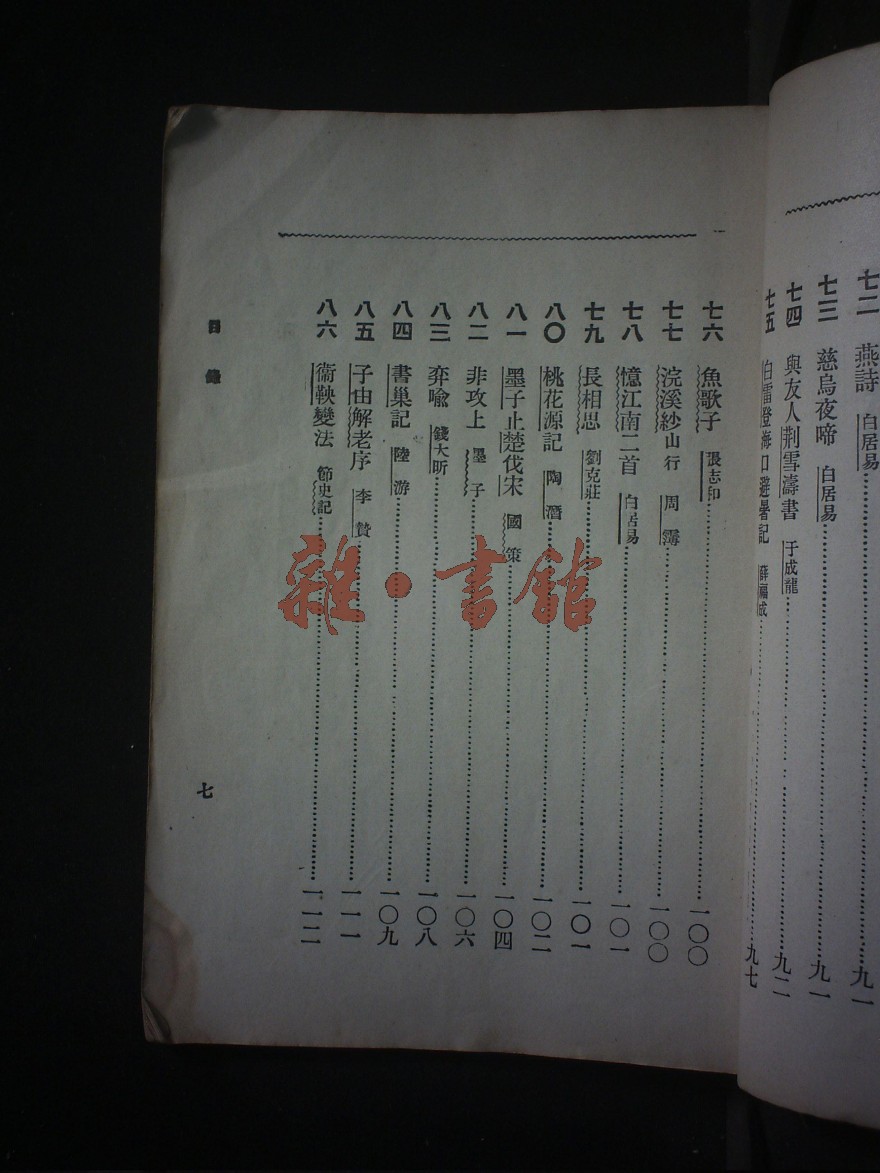 七二 燕詩 白居易 九一
七三 慈烏夜啼 白居易 九一
七四 與友人荆雪濤書 于成龍 九二
七五 白雷登海口避暑記 薛福成 九七
七六 魚歌子 張志和 一〇〇
七七 浣溪紗山行 周 一〇〇
七八 憶江南二首 白居易 一〇一
七九 長相思 劉克莊 一〇一
八〇 桃花源記 陶潛 一〇二
八一 墨子止楚伐宋 國策 一〇四
八二 非攻上 墨子 一〇六
八三 弈喩 錢大昕 一〇八
八四 書巢記 陸游 一〇九
八五 子由解老序 李贄 一一一
八六 衞鞅變法 節史記 一一二
目錄
七
雜·書館